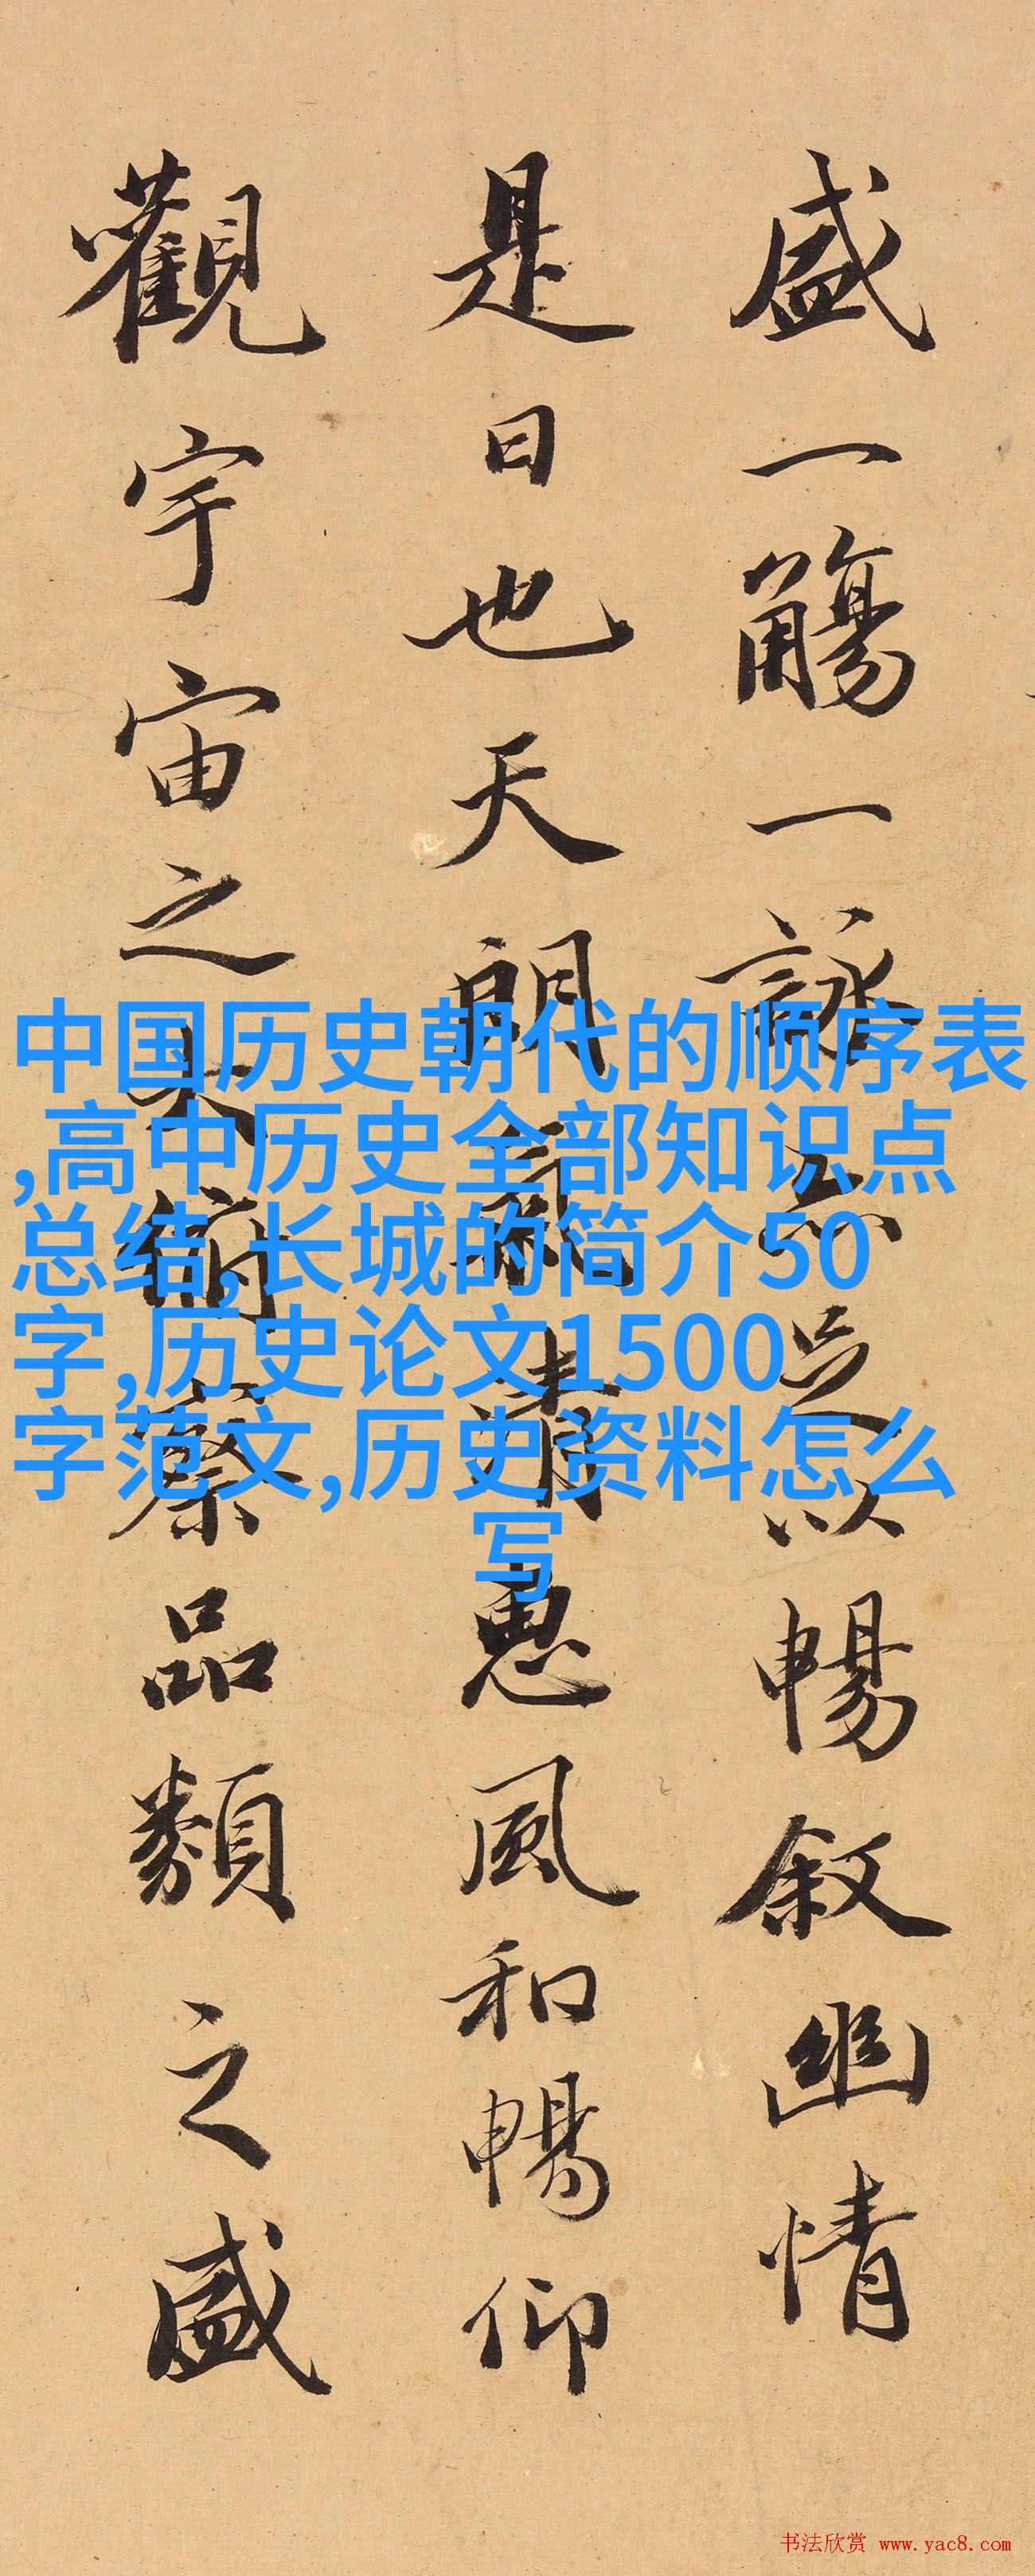 盛一觴一詠亦足以暢叙幽情
是日也天朗氣清惠風和暢仰
觀宇宙之大俯察品類之盛
中国历史朝代的顺序表
,高中历史全部知识点
总结,长城的简介50
字,历史论文1500
字范文,历史资料怎么
写
书法欣赏 www.yac8.com